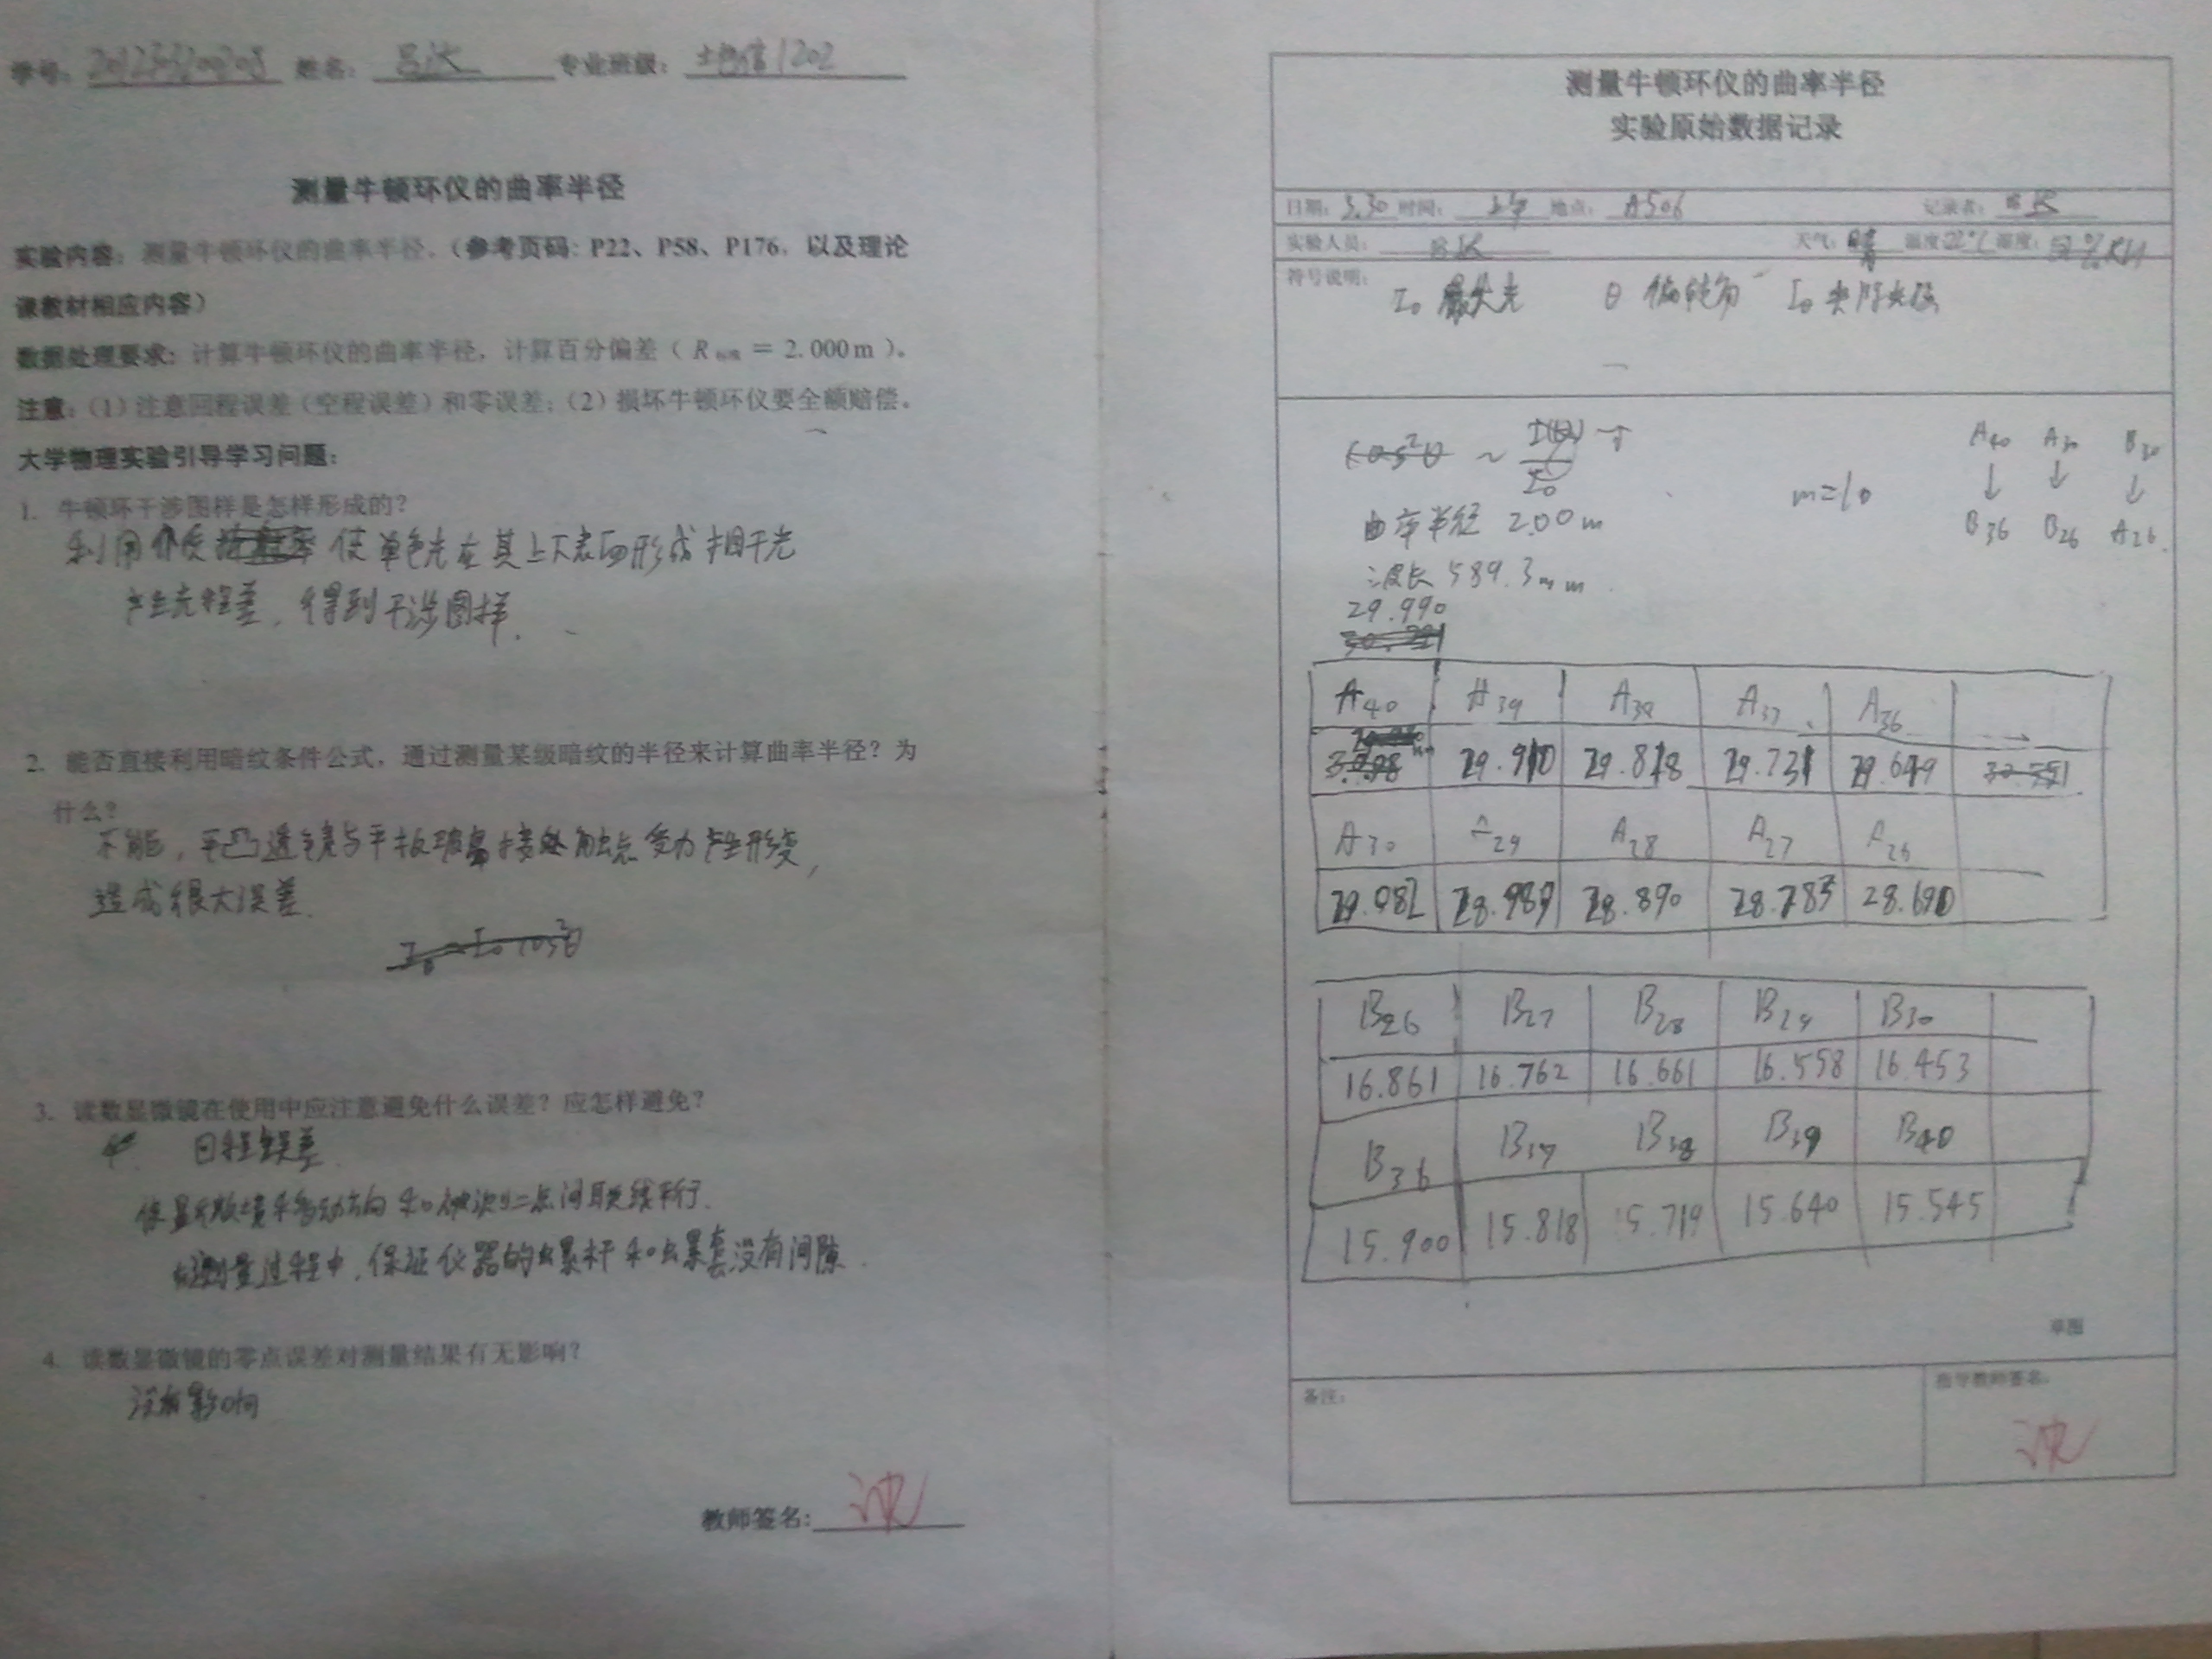 学号: 姓名: 专业班级: 1202
测量牛顿环仪的曲率半径
实验内容: 测量牛顿环仪的曲率半径。(参考页码: P22、P58、P176, 以及理论
课教材相应内容)
数据处理要求: 计算牛顿环仪的曲率半径, 计算百分偏差( R = 2.000m )。
注意: (1) 注意回程误差(空程误差)和零误差; (2) 损坏牛顿环仪要全额赔偿。
大学物理实验引导学习问题:
1. 牛顿环干涉图样是怎样形成的?
利用 使单色光在其上下表面形成相干光
产生光程差, 得到干涉图样.
2. 能否直接利用暗纹条件公式, 通过测量某级暗纹的半径来计算曲率半径? 为
什么?
不能, 平凸透镜与平板玻璃接触点受力产生形变,
造成很大误差.
3. 读数显微镜在使用中应注意避免什么误差? 应怎样避免?
回程误差.
使显微镜移动方向和被测二点间联线平行.
测量过程中, 保证仪器的螺杆和螺套没有间隙.
4. 读数显微镜的零点误差对测量结果有无影响?
没有影响
教师签名:
测量牛顿环仪的曲率半径
实验原始数据记录
日期: 3.30 时间: 地点: A506 记录者:
实验人员: 天气: 晴 温度: 湿度: %RH
符号说明: I₀ 最大光 θ 偏转角 I_θ 实际光强
cos²θ ~ I(θ)/I₀
m=10
A40 A30 B30
↓ ↓ ↓
B36 B26 A26
曲率半径 2.00m
波长 589.3nm
29.990
A40 A39 A38 A37 A36
29.910 29.818 29.731 29.649
A30 A29 A28 A27 A26
29.082 28.989 28.890 28.783 28.690
B26 B27 B28 B29 B30
16.861 16.762 16.661 16.558 16.453
B36 B37 B38 B39 B40
15.900 15.818 15.719 15.640 15.545
草图
备注: 指导教师签名: